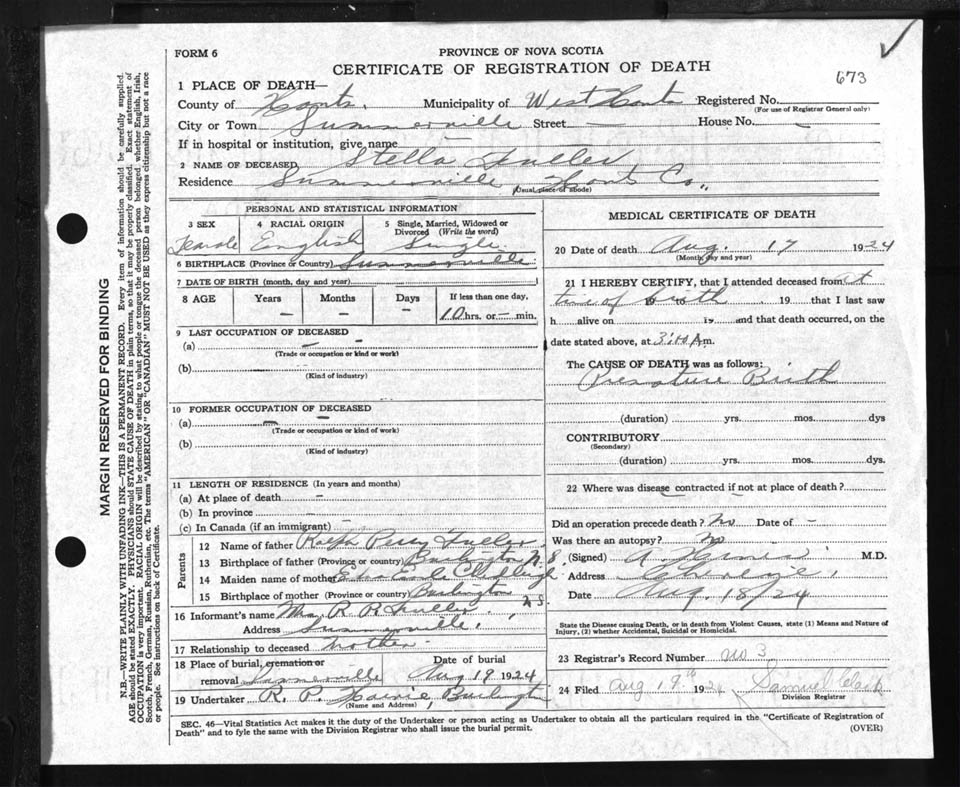 FORM 6
PROVINCE OF NOVA SCOTIA
CERTIFICATE OF REGISTRATION OF DEATH
673
1 PLACE OF DEATH—
County of Hants. Municipality of West Hants Registered No.
(For use of Registrar General only)
City or Town Summerville Street — House No. -
If in hospital or institution, give name
2 NAME OF DECEASED Stella Fuller
Residence Summerville Hants Co.,
(Usual place of abode)
PERSONAL AND STATISTICAL INFORMATION
3 SEX 4 RACIAL ORIGIN 5 Single, Married, Widowed or Divorced (Write the word)
Female English Single.
6 BIRTHPLACE (Province or Country) Summerville
7 DATE OF BIRTH (month, day and year)
8 AGE Years Months Days If less than one day,
— — — 10 hrs. or — min.
9 LAST OCCUPATION OF DECEASED
(a) — -
(Trade or occupation or kind or work)
(b)
(Kind of industry)
10 FORMER OCCUPATION OF DECEASED
(a) — -
(Trade or occupation or kind of work)
(b)
(Kind of industry)
11 LENGTH OF RESIDENCE (In years and months)
(a) At place of death -
(b) In province -
(c) In Canada (if an immigrant) -
Parents
12 Name of father Ralph Percy Fuller
13 Birthplace of father (Province or country) Burlington N.S.
14 Maiden name of mother
15 Birthplace of mother (Province or country) Burlington N S
16 Informant's name Mrs R. P. Fuller
Address Summerville,
17 Relationship to deceased Mother
18 Place of burial, cremation or Date of burial
removal Summerville Aug 19 1924
19 Undertaker R. P. Burlington
(Name and Address)
MEDICAL CERTIFICATE OF DEATH
20 Date of death Aug. 17 1924
(Month, day and year)
21 I HEREBY CERTIFY, that I attended deceased from at
time of Birth 19 that I last saw
h alive on 19 and that death occurred, on the
date stated above, at 3:00 A m.
The CAUSE OF DEATH was as follows:
Premature Birth
(duration) yrs. mos. dys
CONTRIBUTORY
(Secondary)
(duration) yrs. mos. dys.
22 Where was disease contracted if not at place of death?
Did an operation precede death? No Date of -
Was there an autopsy? no
(Signed) M.D.
Address
Date Aug. 18/24
State the Disease causing Death, or in death from Violent Causes, state (1) Means and Nature of
Injury, (2) whether Accidental, Suicidal or Homicidal.
23 Registrar's Record Number no 3
24 Filed Aug 19th 1924 Samuel
Division Registrar
SEC. 46—Vital Statistics Act makes it the duty of the Undertaker or person acting as Undertaker to obtain all the particulars required in the "Certificate of Registration of
Death" and to fyle the same with the Division Registrar who shall issue the burial permit.
(OVER)
MARGIN RESERVED FOR BINDING
N.B.—WRITE PLAINLY WITH UNFADING INK—THIS IS A PERMANENT RECORD. Every item of information should be carefully supplied.
AGE should be stated EXACTLY. PHYSICIANS should STATE CAUSE OF DEATH in plain terms, so that it may be properly classified. Exact statement of
OCCUPATION is very important. RACIAL ORIGIN will be described by stating to what people or tongue the deceased person belonged, whether English, Irish,
Scotch, French, German, Russian, Ruthenian, etc. The terms "AMERICAN" OR "CANADIAN" MUST NOT BE USED as they express citizenship but not a race
or people. See instructions on back of Certificate.